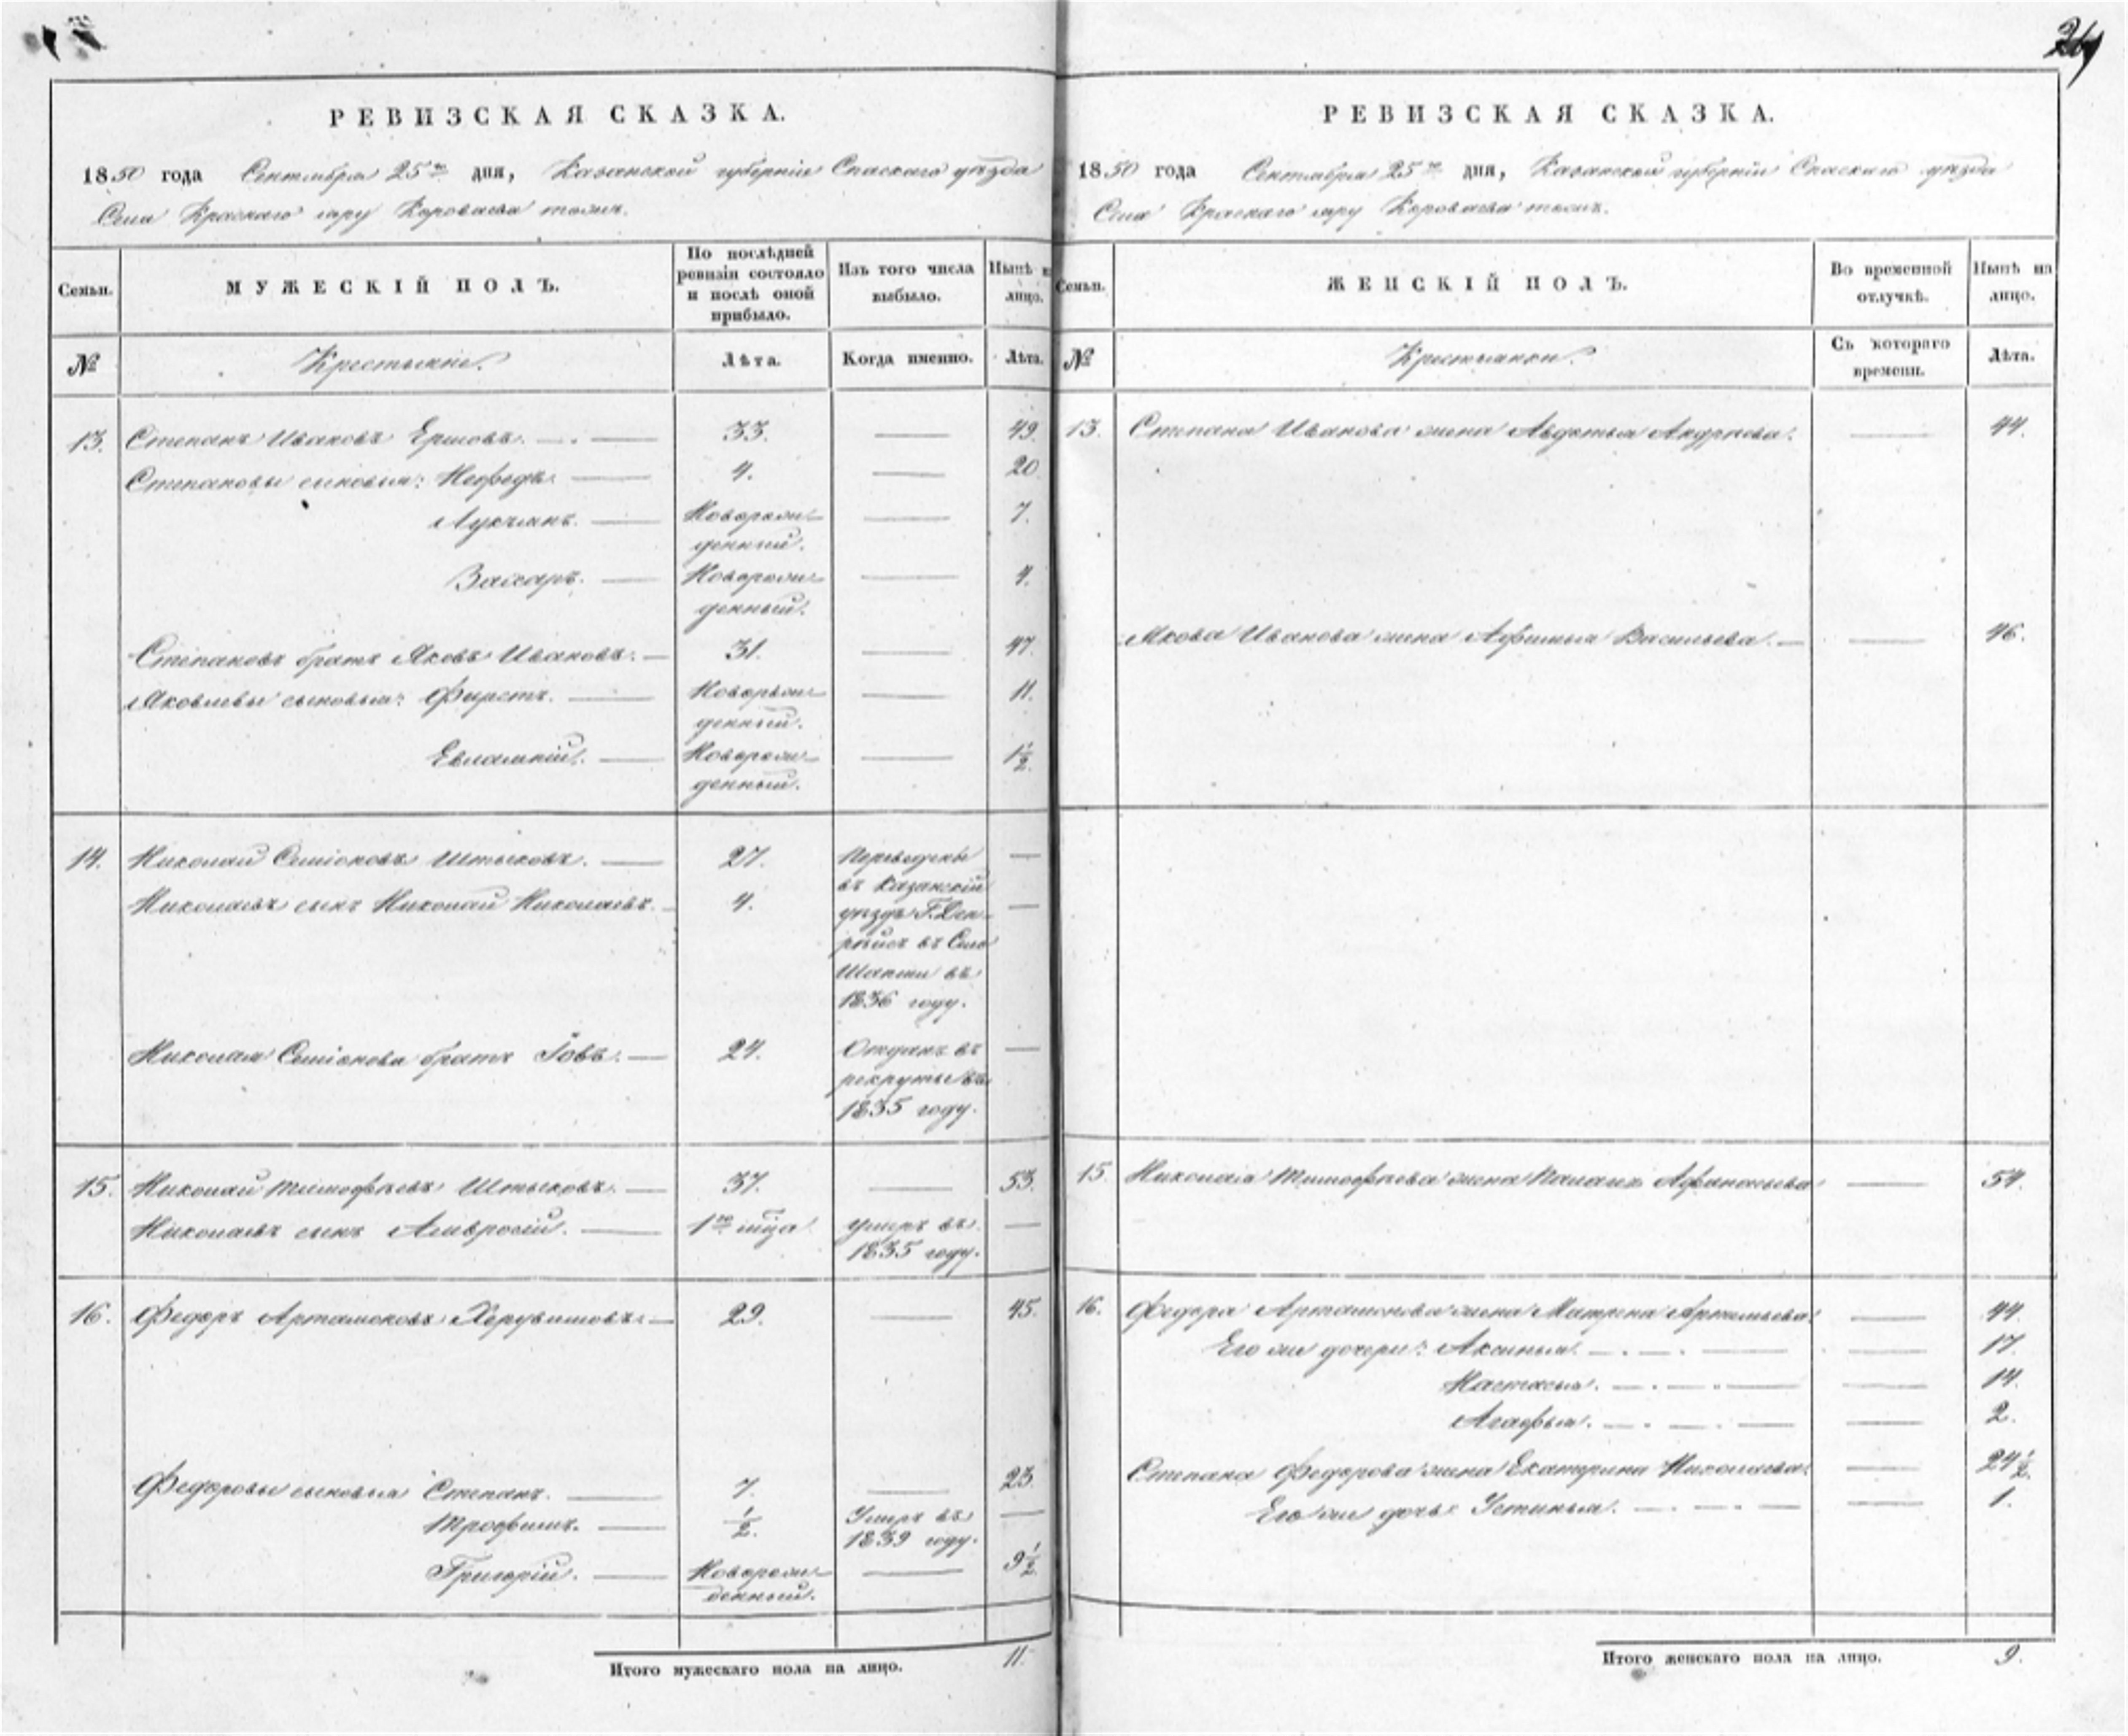 24
РЕВИЗСКАЯ СКАЗКА.
1850 года Сентября 25го дня, Казанской губернiи Спаскаго уѣзда
Села Краснаго яру Короваева тожъ.
Семьи.
МУЖЕСКІЙ ПОЛЪ.
По послѣдней
ревизіи состояло
и послѣ оной
прибыло.
Изъ того числа
выбыло.
Нынѣ на
лицо.
№
Крестьяне.
Лѣта.
Когда именно.
Лѣта.
13. Степанъ Ивановъ Ершовъ. 33. 49.
Степановы сыновья: Нефедъ. 4. 20
Лукьянъ.Новорож- 7.
денный.
Захаръ. Новорож- 4.
денный.
Степановъ братъ Яковъ Ивановъ. 31. 47.
Яковлевы сыновья: Фирстъ. Новорож- 11.
денный.
Евлампій. Новорож- 1½.
денный.
14. Николай Семіоновъ Штыковъ. 27. Переведены
въ Казанскій
Николаевъ сынъ Николай Николаевъ. 4. уѣздъ
въ Село
въ
1836 году.
Николая Семіонова братъ Іовъ. 24. Отданъ въ
рекруты въ
1835 году.
15. Николай Тимофѣевъ Штыковъ. 37. 53.
Николаевъ сынъ Амвросій. 1го мца умеръ въ
1835 году.
16. Федоръ Артамоновъ Херувимовъ. 29. 45.
Федоровы сыновья Степанъ. 7. 23.
Трофимъ. ½. Умеръ въ
1839 году.
Григорій. Новорож- 9½
денный.
Итого мужескаго пола на лицо. 11.
РЕВИЗСКАЯ СКАЗКА.
1850 года Сентября 25го дня, Казанской губерніи Спаскаго уѣзда
Села Краснаго яру Короваева тожъ.
Семьи.
ЖЕНСКІЙ ПОЛЪ.
Во временной
отлучкѣ.
Нынѣ на
лицо.
№
Крестьянки.
Съ котораго
времени.
Лѣта.
13. Степана Иванова жена Авдотья Андреева. 44.
Якова Иванова жена Афимья Васильева. 46.
15. Николая Тимофѣева жена Афанасьева 54.
16. Федора Артамонова жена Матрена Артемьева. 44.
Его же дочери: Аксинья. 17.
Настасья. 14.
Агафья. 2.
Степана Федорова жена Екатерина Николаева. 24½.
Его же дочь Устинья. 1.
Итого женскаго пола на лицо. 9.